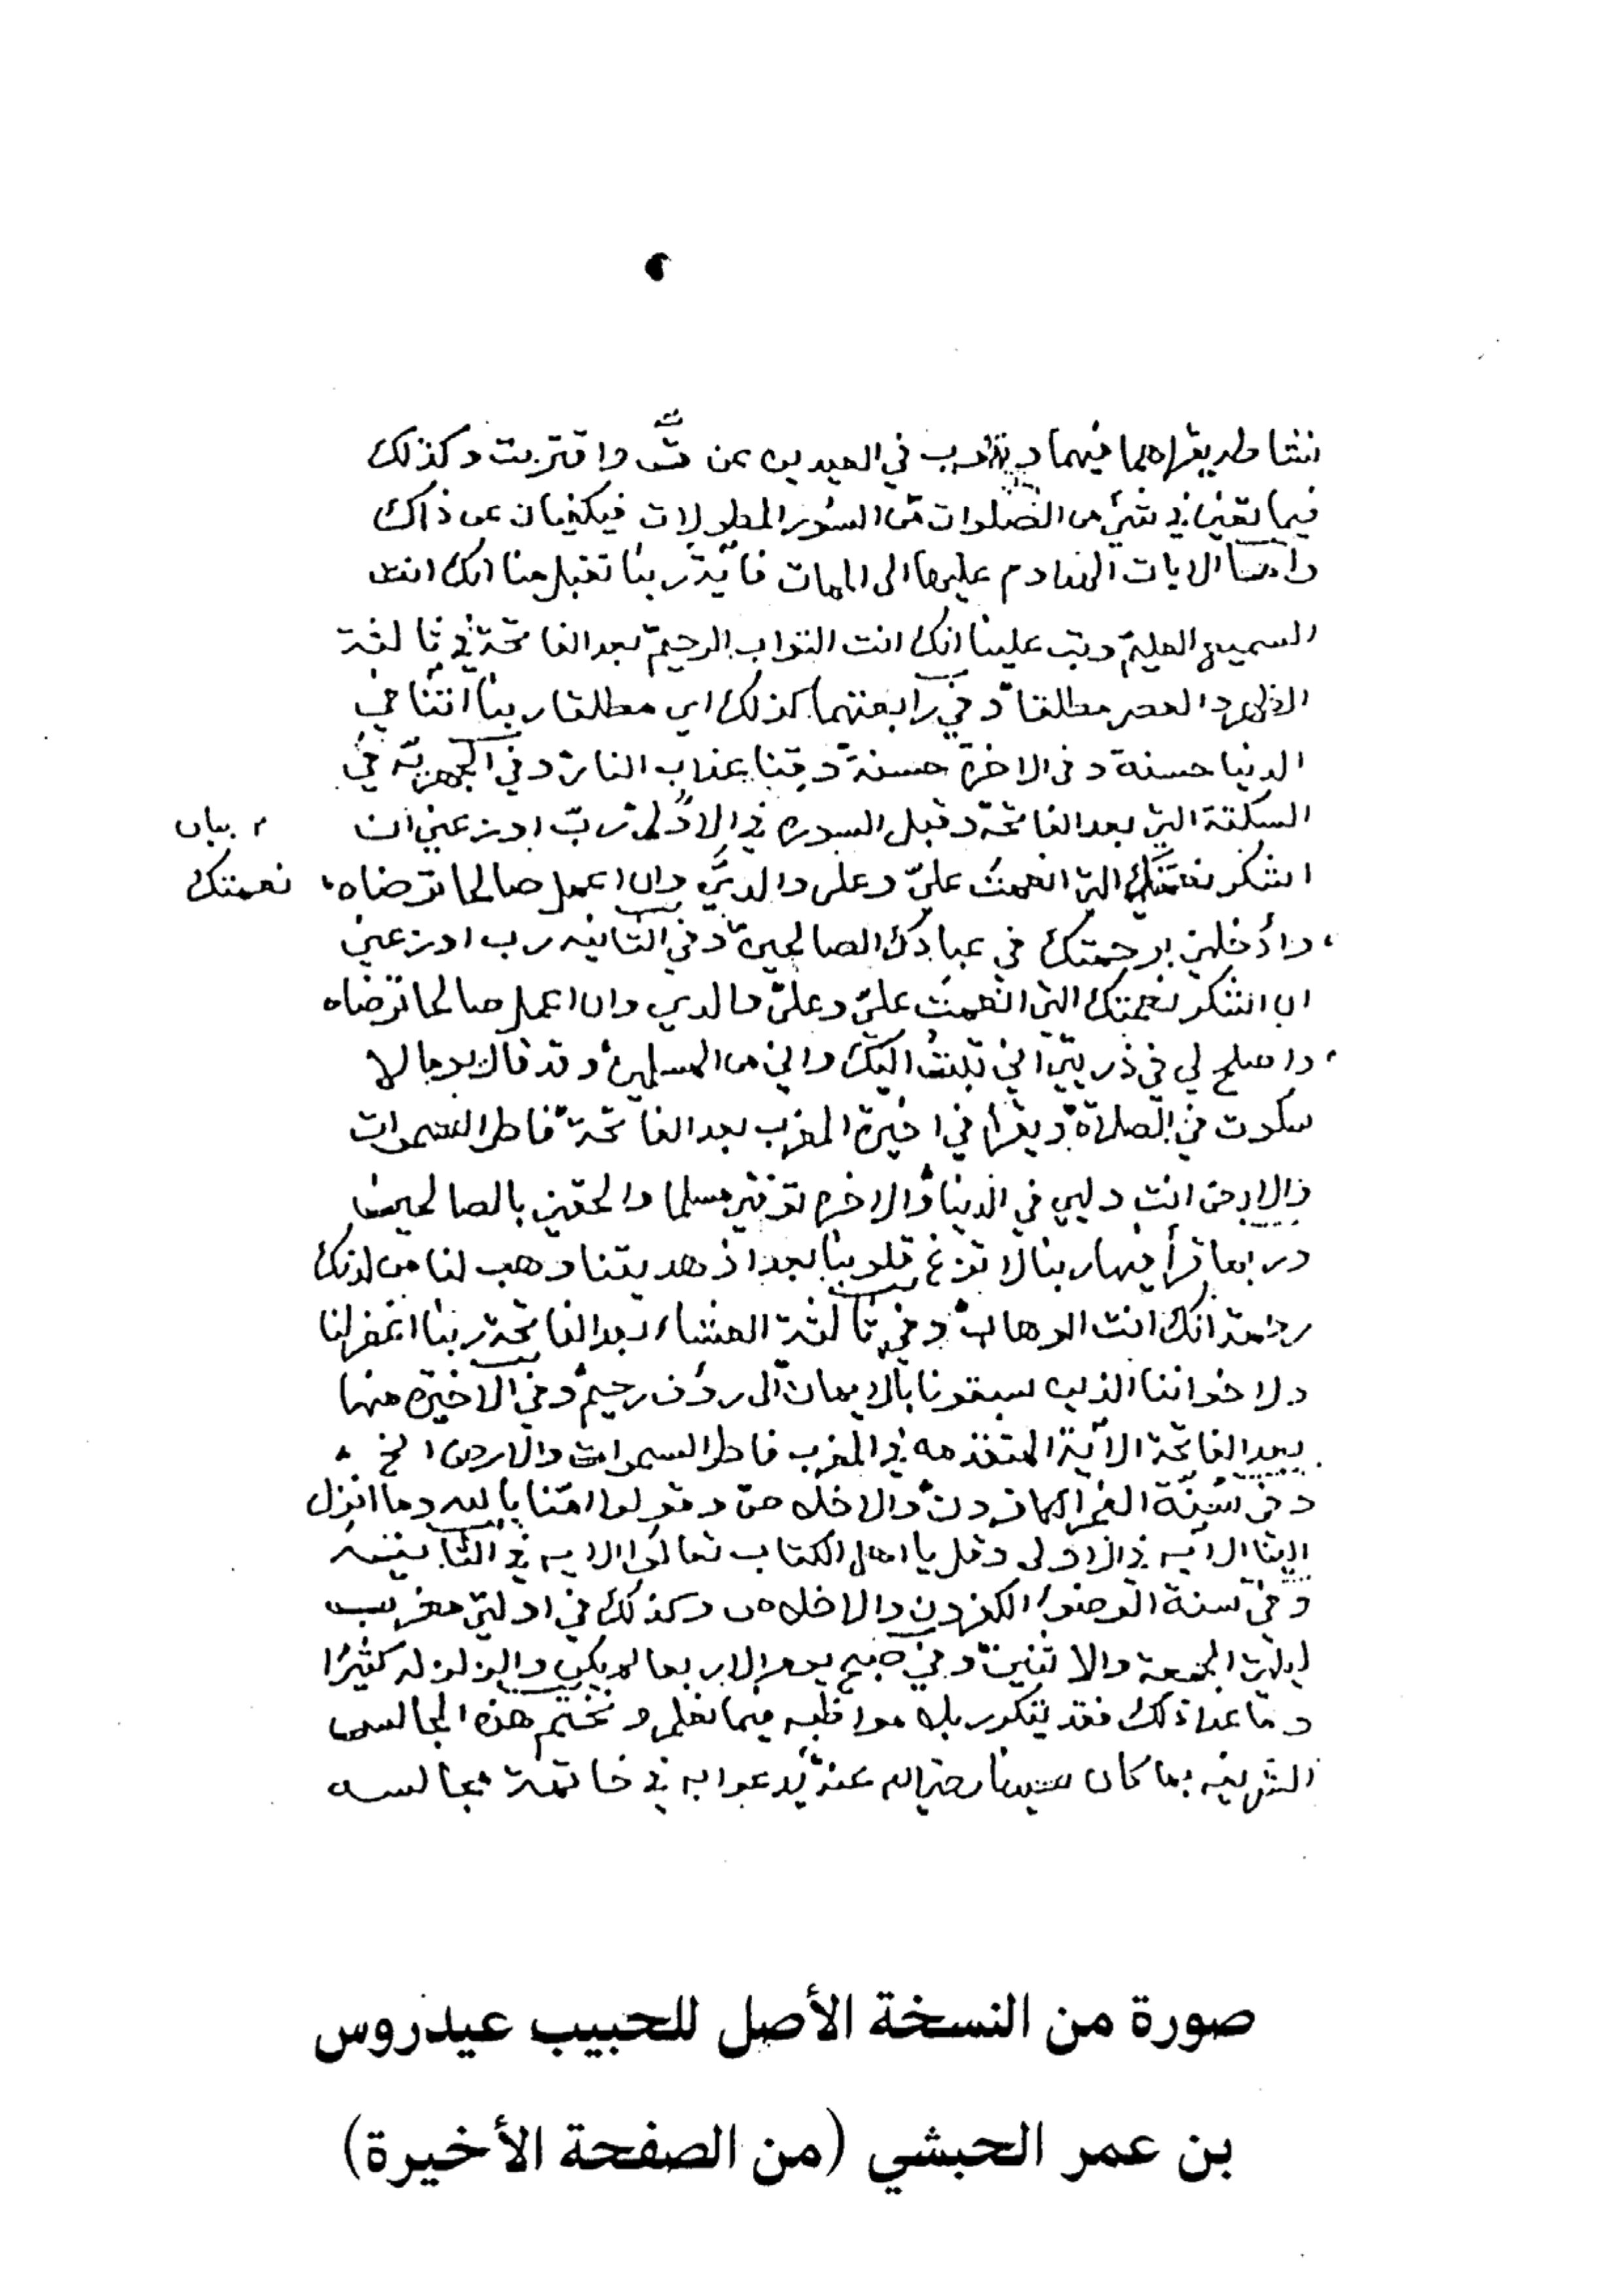 فيهما في العيدين عن قۤ واقتربت وكذلك
فيما تعين في شيء من الصلوات من السور المطولات فيكفيان عن ذاك
واما الايات المداوم عليها الى الممات فآية ربنا تقبل منا انك انت
السميع العليم وتب علينا انك انت التواب الرحيم بعد الفاتحة في ثالثة
الظهر والعصر مطلقا وفي رابعتهما كذلك اي مطلقا ربنا اتنا في
الدنيا حسنة وفي الاخرة حسنة وقنا عذاب النار وفي الجهرية في
السكتة التي بعد الفاتحة وقبل السورة في الاولى رب اوزعني ان
اشكر نعمتك التي انعمت عليّ وعلى والديّ وان اعمل صالحا ترضاه
بيان
نعمتك
وأدخلني برحمتك في عبادك الصالحين وفي الثانية رب اوزعني
ان اشكر نعمتك التي انعمت عليّ وعلى والدي وان اعمل صالحا ترضاه
واصلح لي في ذريتي اني تبت اليك واني من المسلمين وقد قالوا لا
سكوت في الصلاة ويقرأ في اخيرة المغرب بعد الفاتحة فاطر السموات
والارض انت وليي في الدنيا والاخرة توفني مسلما والحقني بالصالحين
وربما قرأ فيها ربنا لا تزغ قلوبنا بعد اذ هديتنا وهب لنا من لدنك
رحمة انك انت الوهاب وفي ثالثة العشاء بعد الفاتحة ربنا اغفر لنا
ولاخواننا الذين سبقونا بالايمان الى رؤف رحيم وفي الاخيرة منها
بعد الفاتحة الآية المتقدمه في المغرب فاطر السموات والارض الخ
وفي سنّة الفجر الكافرون والاخلاص وقولوا امنّا بالله وما انزل
الينا الآيه في الاولى وقل يا اهل الكتاب تعالوا الايه في الثانية
وفي سنة الوضوء الكفرون والاخلاص وكذلك في اولتي مغرب
ليلة الجمعة والاثنين وفي صبح يوم الاربعا لم يكن والزلزله كثيرًا
وما عدا ذلك فقد يتكرر بلا مواظبه فيما نعلم ونختم هذه المجالس
الشريفه بما كان سيدنا رضي الله عنه يدعوا به في خاتمة مجالسه
صورة من النسخة الأصل للحبيب عيدروس
بن عمر الحبشي (من الصفحة الأخيرة)